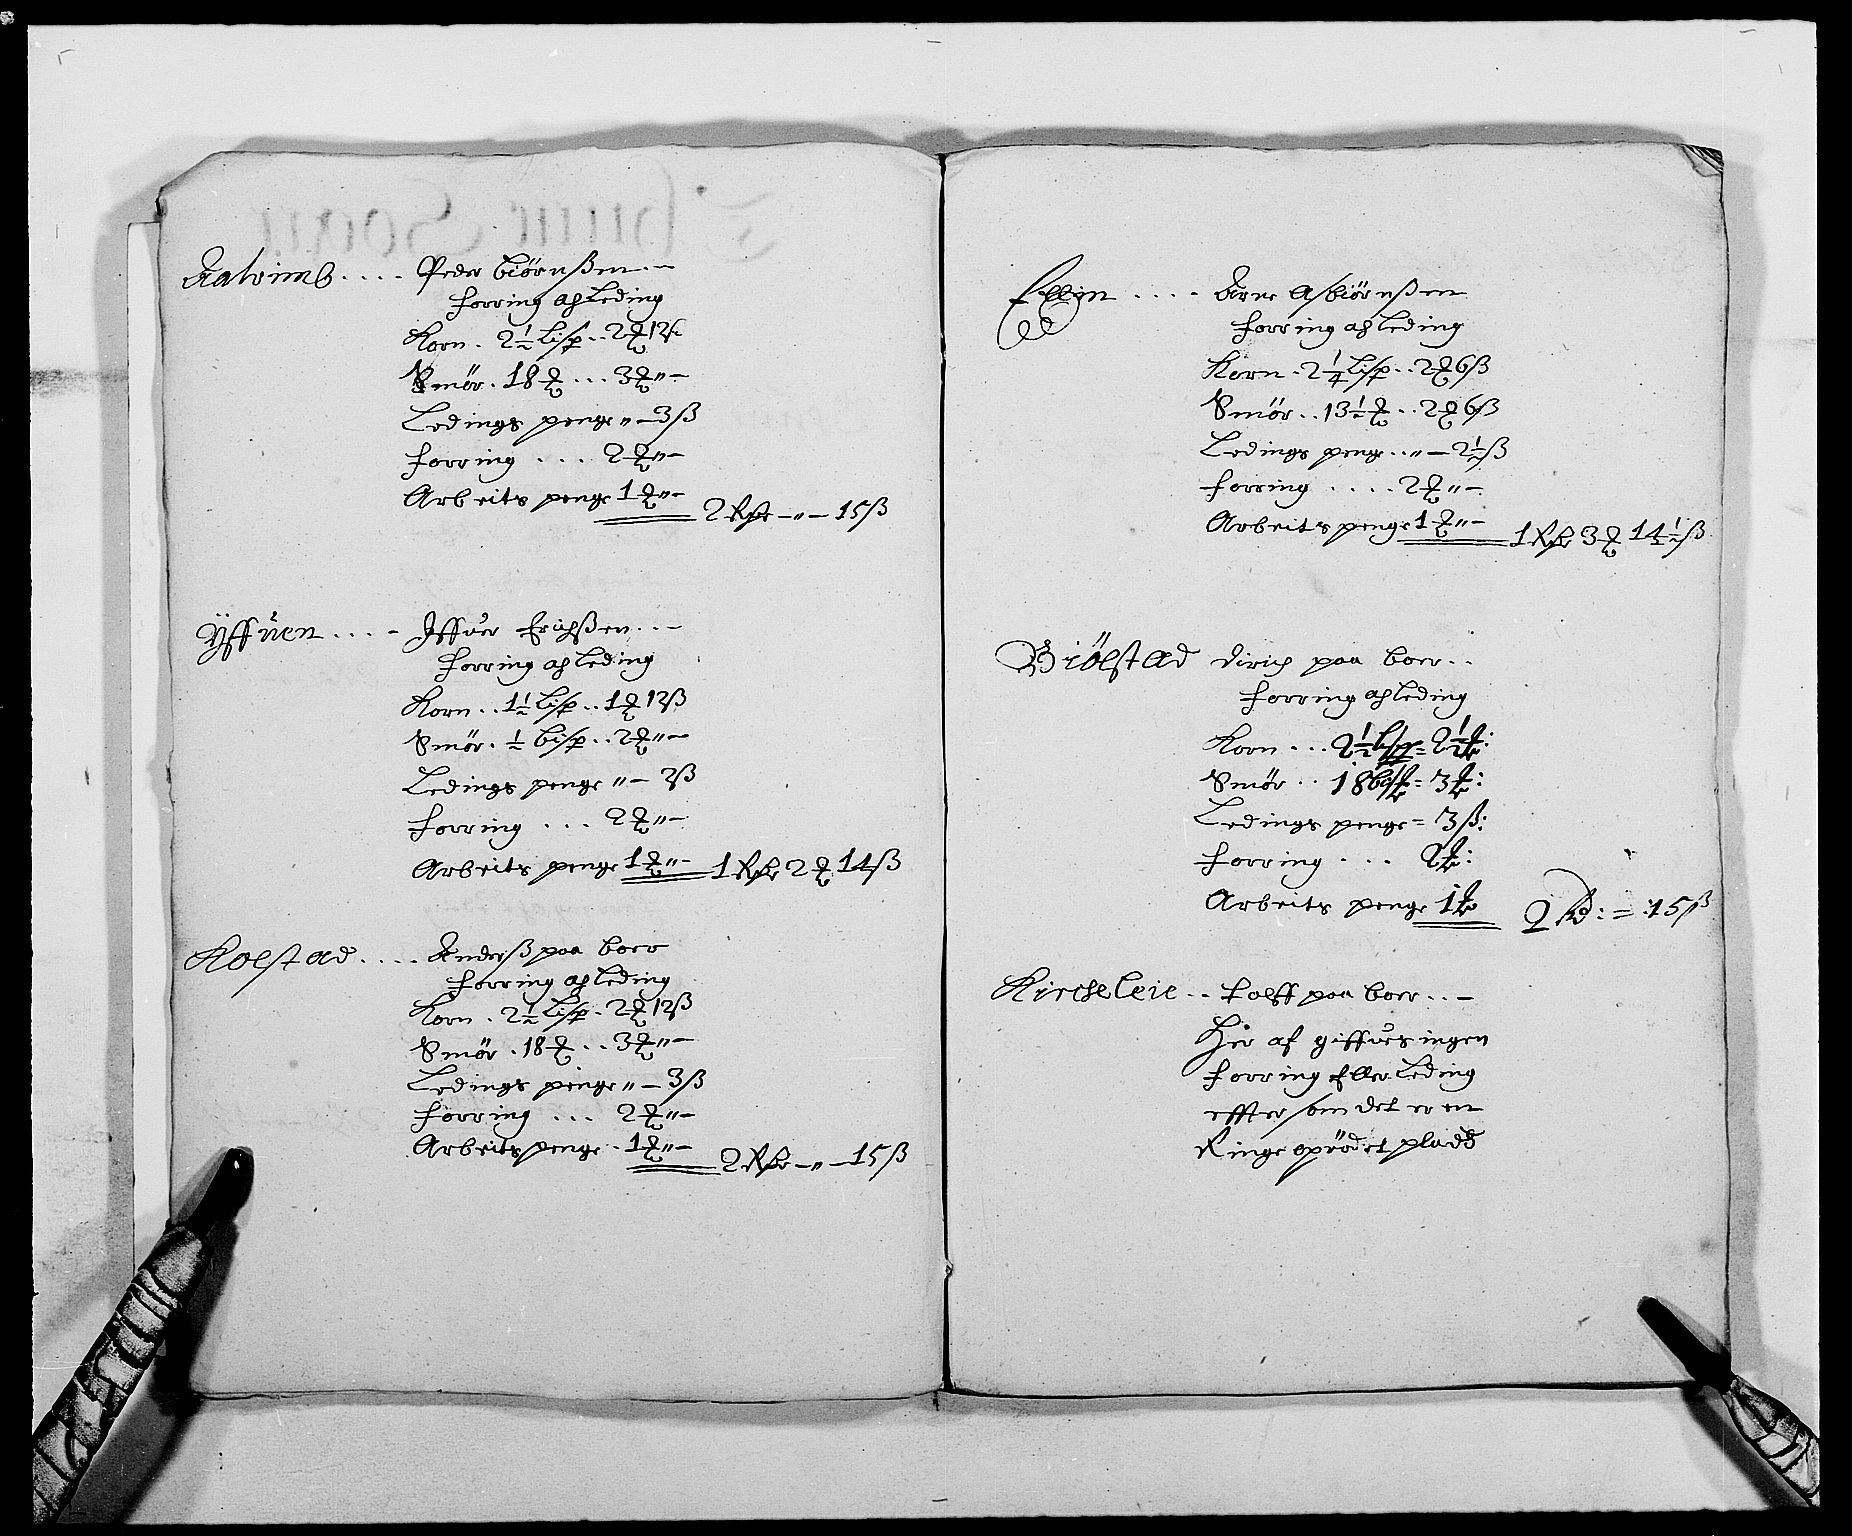 Aalvimb .... Peder biörnßen
forring af Leding
Korn . 2½ Lisp .. 2 ꝸ 12 s
Smör . 18 ꝸ ... 3 ꝸ "-
Ledings penge "- 3 ß
forring ... 2 ꝸ "-
Arbeits penge 1 ꝸ "-
2 Rdr - " - 15 ß
Ÿffüen .... Iffuer Erichßen ..
forring af leding
Korn .. 1½ Lisp .. 1 ꝸ 12 ß
Smör . ½ bisp .. 2 ꝸ "-
Ledings penge "- 2 ß
forring ... 2 ꝸ "-
Arbeits penge 1 ꝸ "-
1 Rdr 2 ꝸ 14 ß
Kolstad .... Anderß paa boer
forring af leding
Korn . 2½ Lisp . 2 ꝸ 12 ß
Smör . 18 ꝸ .. 3 ꝸ "-
Ledings penge "- 3 ß
forring ... 2 ꝸ "-
Arbeits penge . 1 ꝸ "-
2 Rdr - " - 15 ß
Ellin .... Arne Asbiörnßen
forring af leding
Korn . 2¼ Lisp .. 2 ꝸ 6 ß
Smör .. 13½ ꝸ .. 2 ꝸ 6 ß
Ledings penge .. " - 2½ ß
forring .... 2 ꝸ "-
Arbeits penge 1 ꝸ "-
1 Rdr 3 ꝸ 14½ ß
Biölstad dirich paa boer ..
forring af leding
Korn ... 2½ Lisp = 2½ ꝸ :
Smör .. 18 = 3 ꝸ :
Ledings penge = 3 ß :
forring ... 2 ꝸ :
Arbeits penge 1 ꝸ
2 Rd : = : 15 ß
Kircheleie .. Rolff paa boer ..
Hier af giffues ingen
forring Eller Leding
effter som det er en
Ringe oprödet pladß